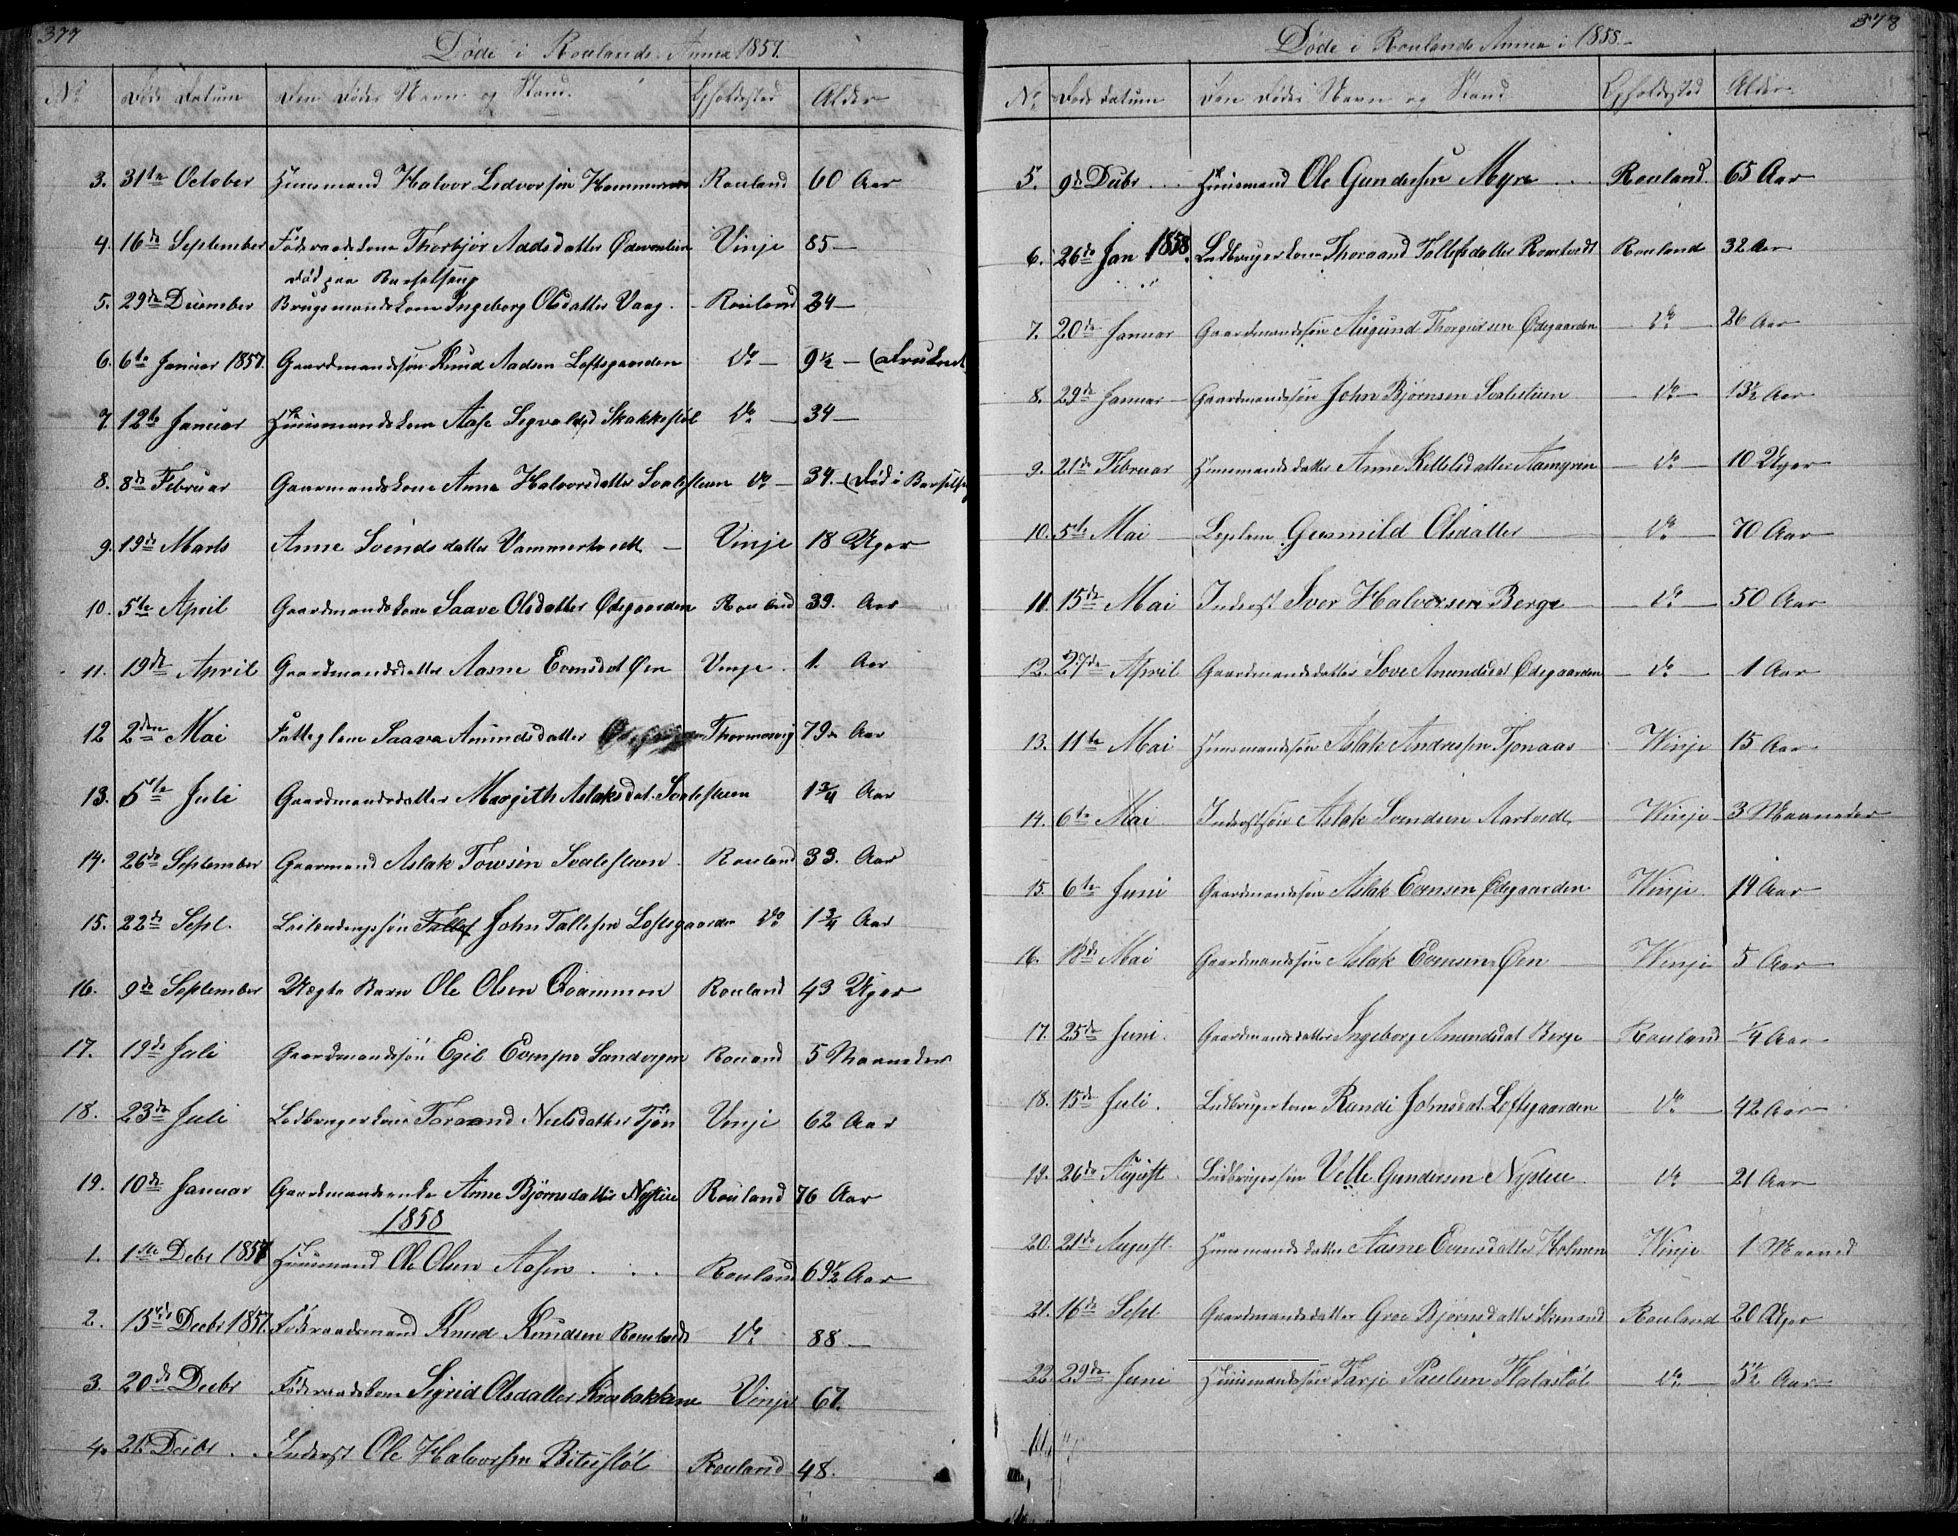 377
Døde i Roulands Annex 1857.
No Døds Datum Den Dødes Navn og Stand. Opholdssted Alder
3. 31te October Huusmand Halvor Ledvorsen Rouland 60 Aar
4. 16de September Føderaadskone Thorbjør Aadsdatter Vinje 85 —
død paa Barselseng
5. 29de December Brugsmandskone Ingeborg Olsdatter Vaag. Rouland 24 —
6. 6te Januar 1857. Gaardmandssøn Knud Aadsen Loftsgaarden Do — 9½ — (Druknet
7. 12te Januar Huusmandskone Aase Sigvaldsd Skakkestøl Do — 34 —
8. 8de Februar Gaarmandskone Anne Halvorsdatter Svalesteen Do — 34. — (Død i Barselse
9. 19de Marts Anne Svendsdatter Vammertvedt — Vinje 18 Uger
10. 5te April Gaardmandskone Saave Olsdatter Ødegaarden Rouland 39. Aar
11. 19de April Gaardmandsdatter Aasne Evensdat Øen Vinje. 1. Aar
12 2den Mai Fatteglem Saave Amundsdatter 79 Aar
13. 5te Juli Gaardmandsdatter Margith Aslaksdat. Svalesteen 1¾ Aar
14. 26de September Gaarmand Aslak Tovsen Svalesteen. Rouland 33. Aar
15. 22de Sept. Leilendingssøn John Tallefsen Loftsgaarden Do 1¾ Aar
16. 9de September Uægte Barn Ole Olsen Qvammen Rouland 43 Uger
17. 19de Juli Gaardmandssøn Egil Evensen Rouland 5 Maaneder
18. 23de Juli Ledbrugerkone Toraand Neelsdatter Tjøn Vinje 62 Aar
19. 10de Januar Gaardmandsenke Anne Bjørnsdatter Nysteen Rouland 76 Aar
1858
1. 1ste Debr 1857 Huusmand Ole Olsen Aasen . . Rouland 69½ Aar
2. 15de Decbr 1857. Føderaadsmand Knud Knudsen Romtvedt Do 88 —
3. 20de Decbr Føderaadskone Sigrid Olsdatter Vinje 67.
4. 21. Decbr. Inderst Ole Halvorsen Bitustøl Rouland 48.
378
Døde i Roulands Annex i 1858. —
No Døds datum Den Dødes Navn og Stand Opholdssted Alder
5. 9de Decbr . . . Huusmand Ole Gundersen Myre . . . Rouland. 65 Aar
6. 26de Jan 1858. Ledbrugerkone Thoraand Tallefsdatter Romtvedt Rouland 32 Aar
7. 20de Januar Gaardmandssøn Augund Thorgersen Ødegaarden — Do — 26 Aar
8. 29de Januar Gaardmandssøn John Bjørnsen — Do — 13½ Aar
9. 21de Februar Huusmandsdatter Anne Kittelsdatter — Do — 10 Uger
10. 5te Mai Leglem Gunnild Olsdatter — Do — 70 Aar
11. 15de Mai Inderst Iver Halvorsen Berge — Do — 50 Aar
12. 27de April Gaardmandsdatter Sove Amundsdat Ødegaarden — Do — 1 Aar
13. 11te Mai Huusmandssøn Aslak Andressen Tjønaas Winje 15 Aar
14. 6te Mai Inderstsøn Aslak Svendsen Aartvedt Winje 3 Maaneder
15. 6te Juni Gaardmandssøn Aslak Evensen Ødegaarden Winje 14 Aar
16. 18de Mai Gaardmandssøn Aslak Evensen Øen Winje 5 Aar
17. 25de Juni. Gaardmandsdatter Ingeborg Amundsdat Berge Rouland ¼ Aar
18. 15de Juli. Ledbrugerkone Randi Johnsdat Loftsgaarden — Do — 42 Aar
19. 26de August. Ledbrugersøn Velle Gundersen Nysteen — Do — 21 Aar
20. 21de August. Huusmandsdatter Aasne Evensdatter Holmen Winje 1 Maaned
21. 16de Sept Gaardmandsdatter Groe Bjørnsdatter Rouland 20 Uger
22 29de Juni Huusmandssøn Tarje Paulsen Flatastøl — Do — 5½ Aar